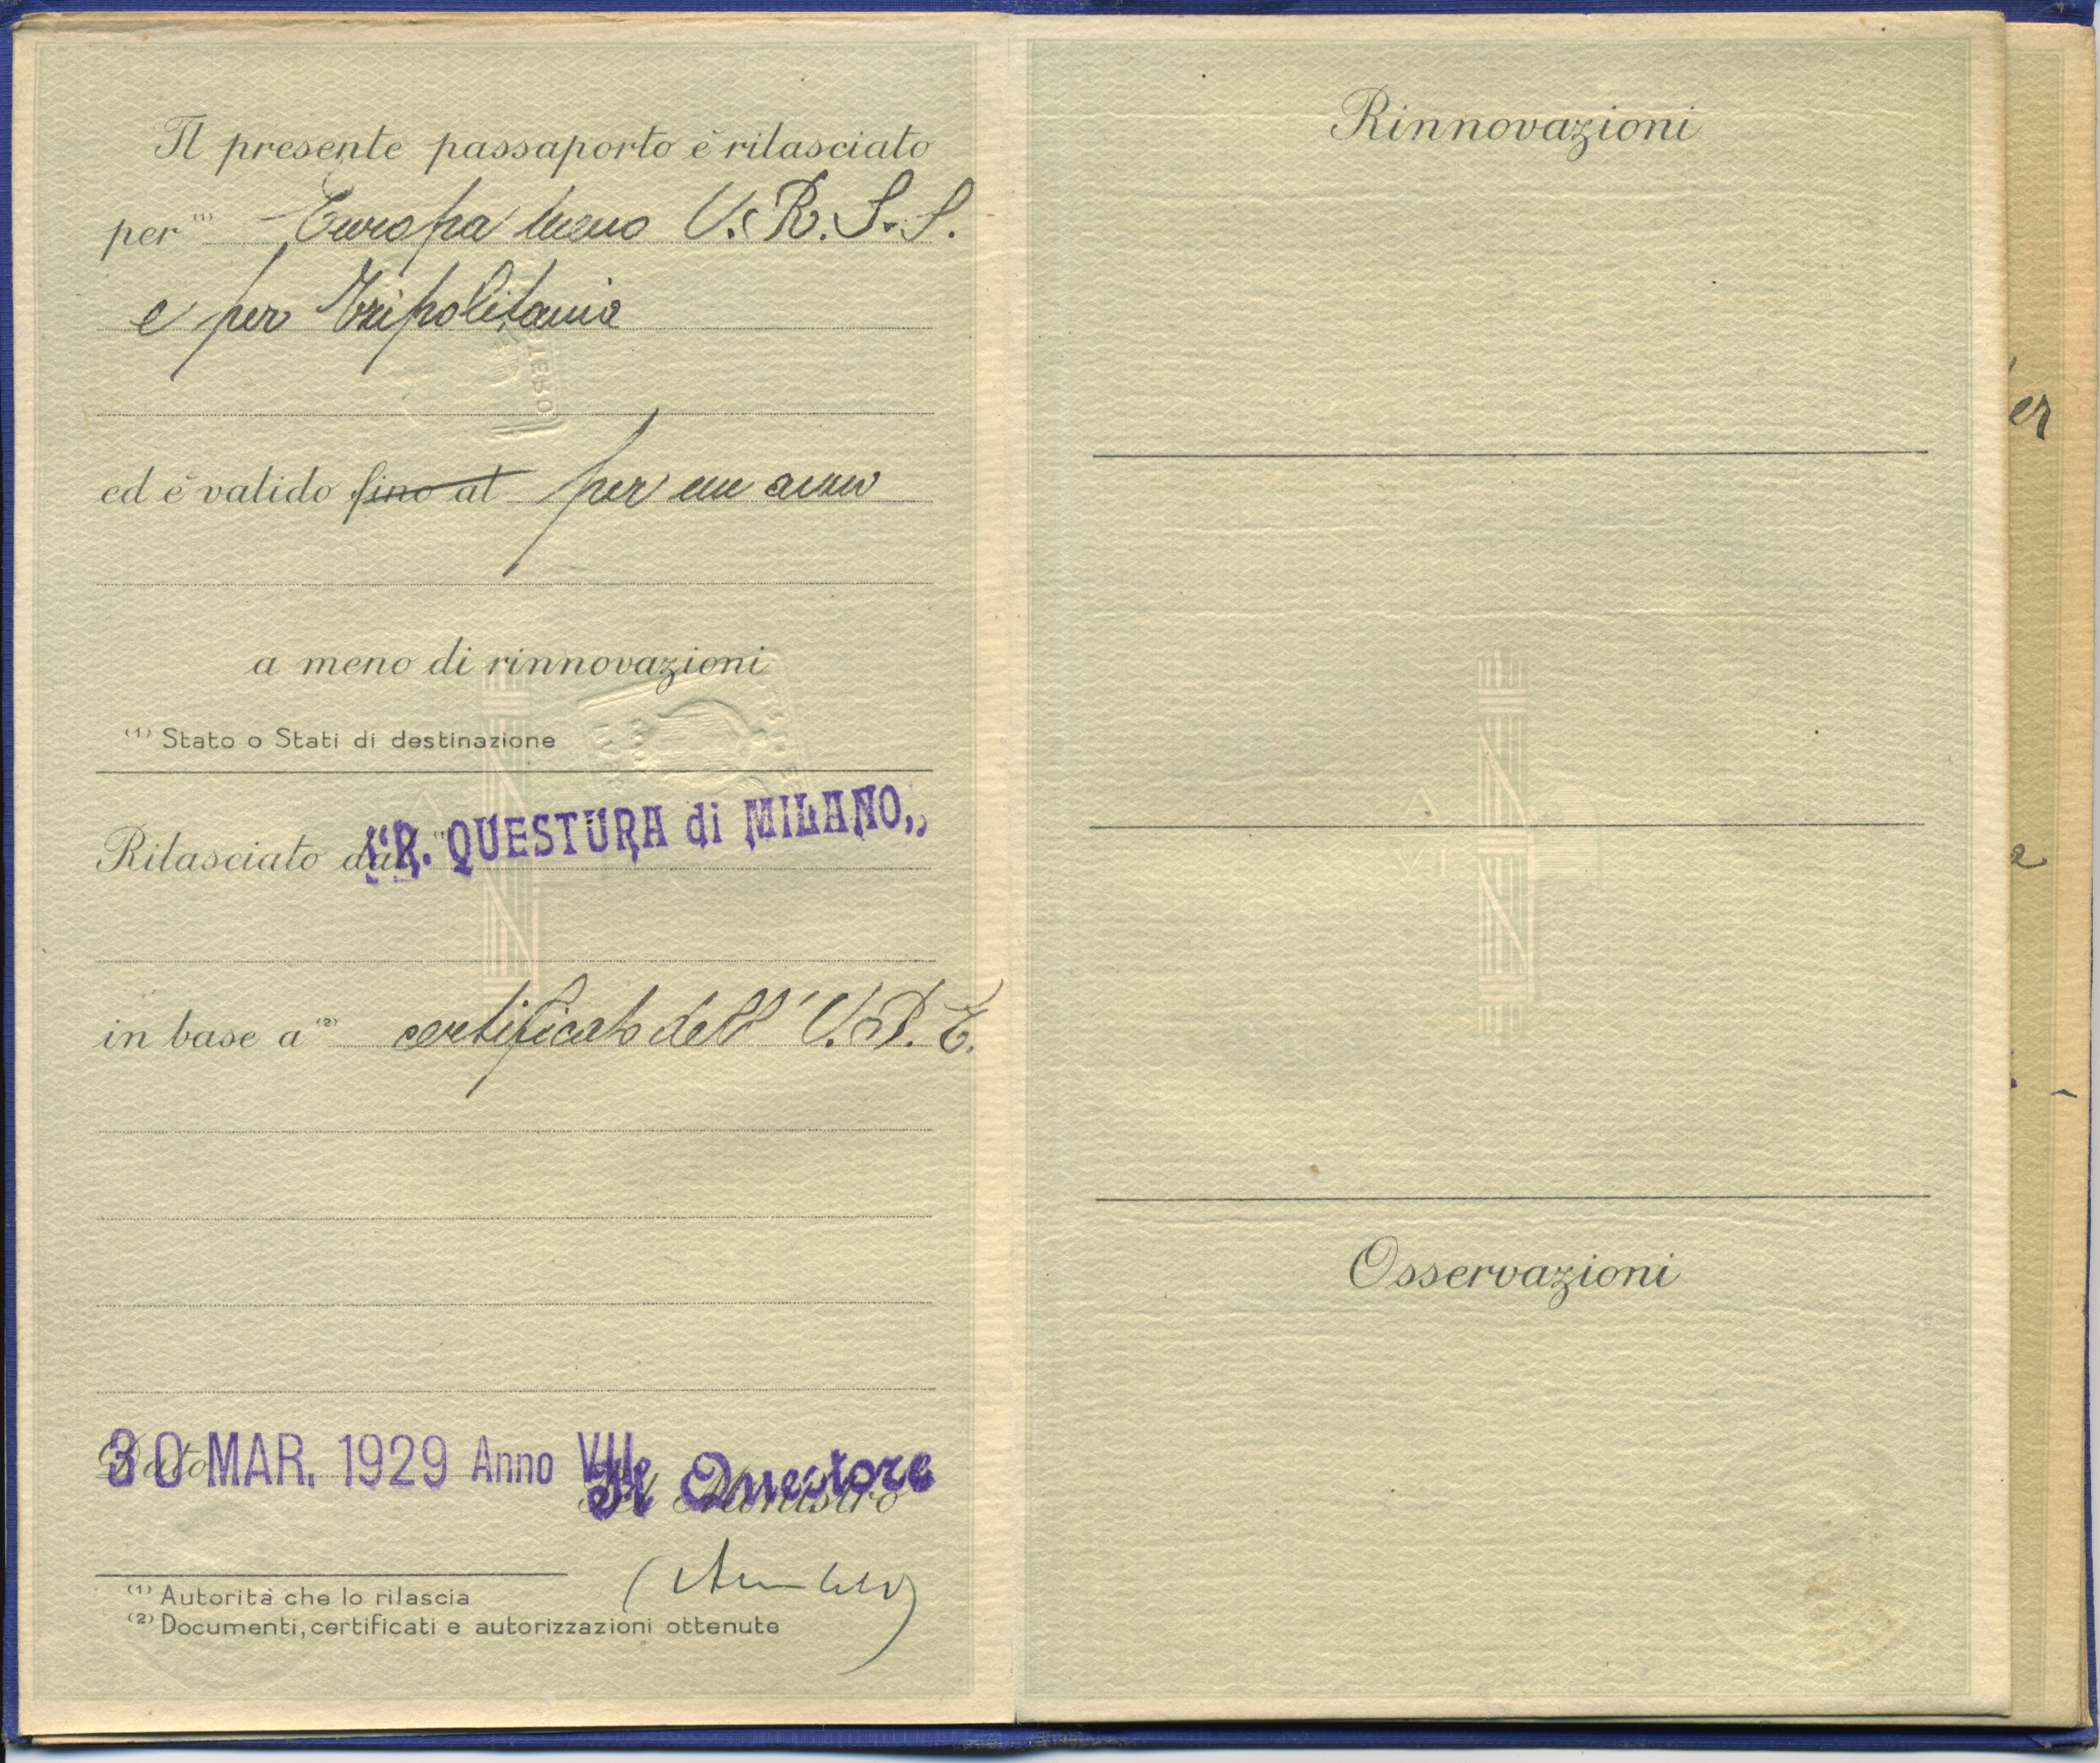 Il presente passaporto è rilasciato
per (1) Europa meno U.R.S.S.
e per Tripolitania
ed è valido fino al per un anno
a meno di rinnovazioni
(1) Stato o Stati di destinazione
Rilasciato dal (1) "R. QUESTURA di MILANO"
in base a (2) certificato dell' U.P.E.
Dato 30 MAR. 1929 Anno VII
Il Ministro Il Questore
(1) Autorità che lo rilascia
(2) Documenti, certificati e autorizzazioni ottenute
Rinnovazioni
VI
Osservazioni
er